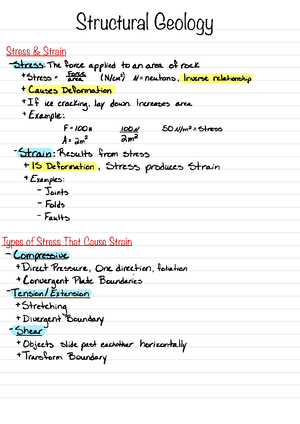 Structural Geology
Stress & Strain
- Stress: The force applied to an area of rock
+ Stress = Force/area (N/cm²) N = neutrons, Inverse relationship
+ Causes Deformation
+ If ice cracking, lay down. Increases area
+ Example:
F = 100N 100N 50 N/m² = stress
A = 2m² 2m²
- Strain: Results from stress
+ IS Deformation, Stress produces Strain
+ Examples:
- Joints
- Folds
- Faults
Types of Stress That Cause Strain
- Compressive
+ Direct Pressure, One direction, foliation
+ Convergent Plate Boundaries
- Tension/Extension
+ Stretching
+ Divergent Boundary
- Shear
+ Objects slide past eachother horizontally
+ Transform Boundary